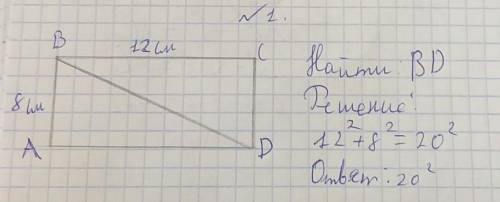 №1.
B 12 см C
8 см
A D
Найти: BD
Решение:
12² + 8² = 20²
Ответ: 20²